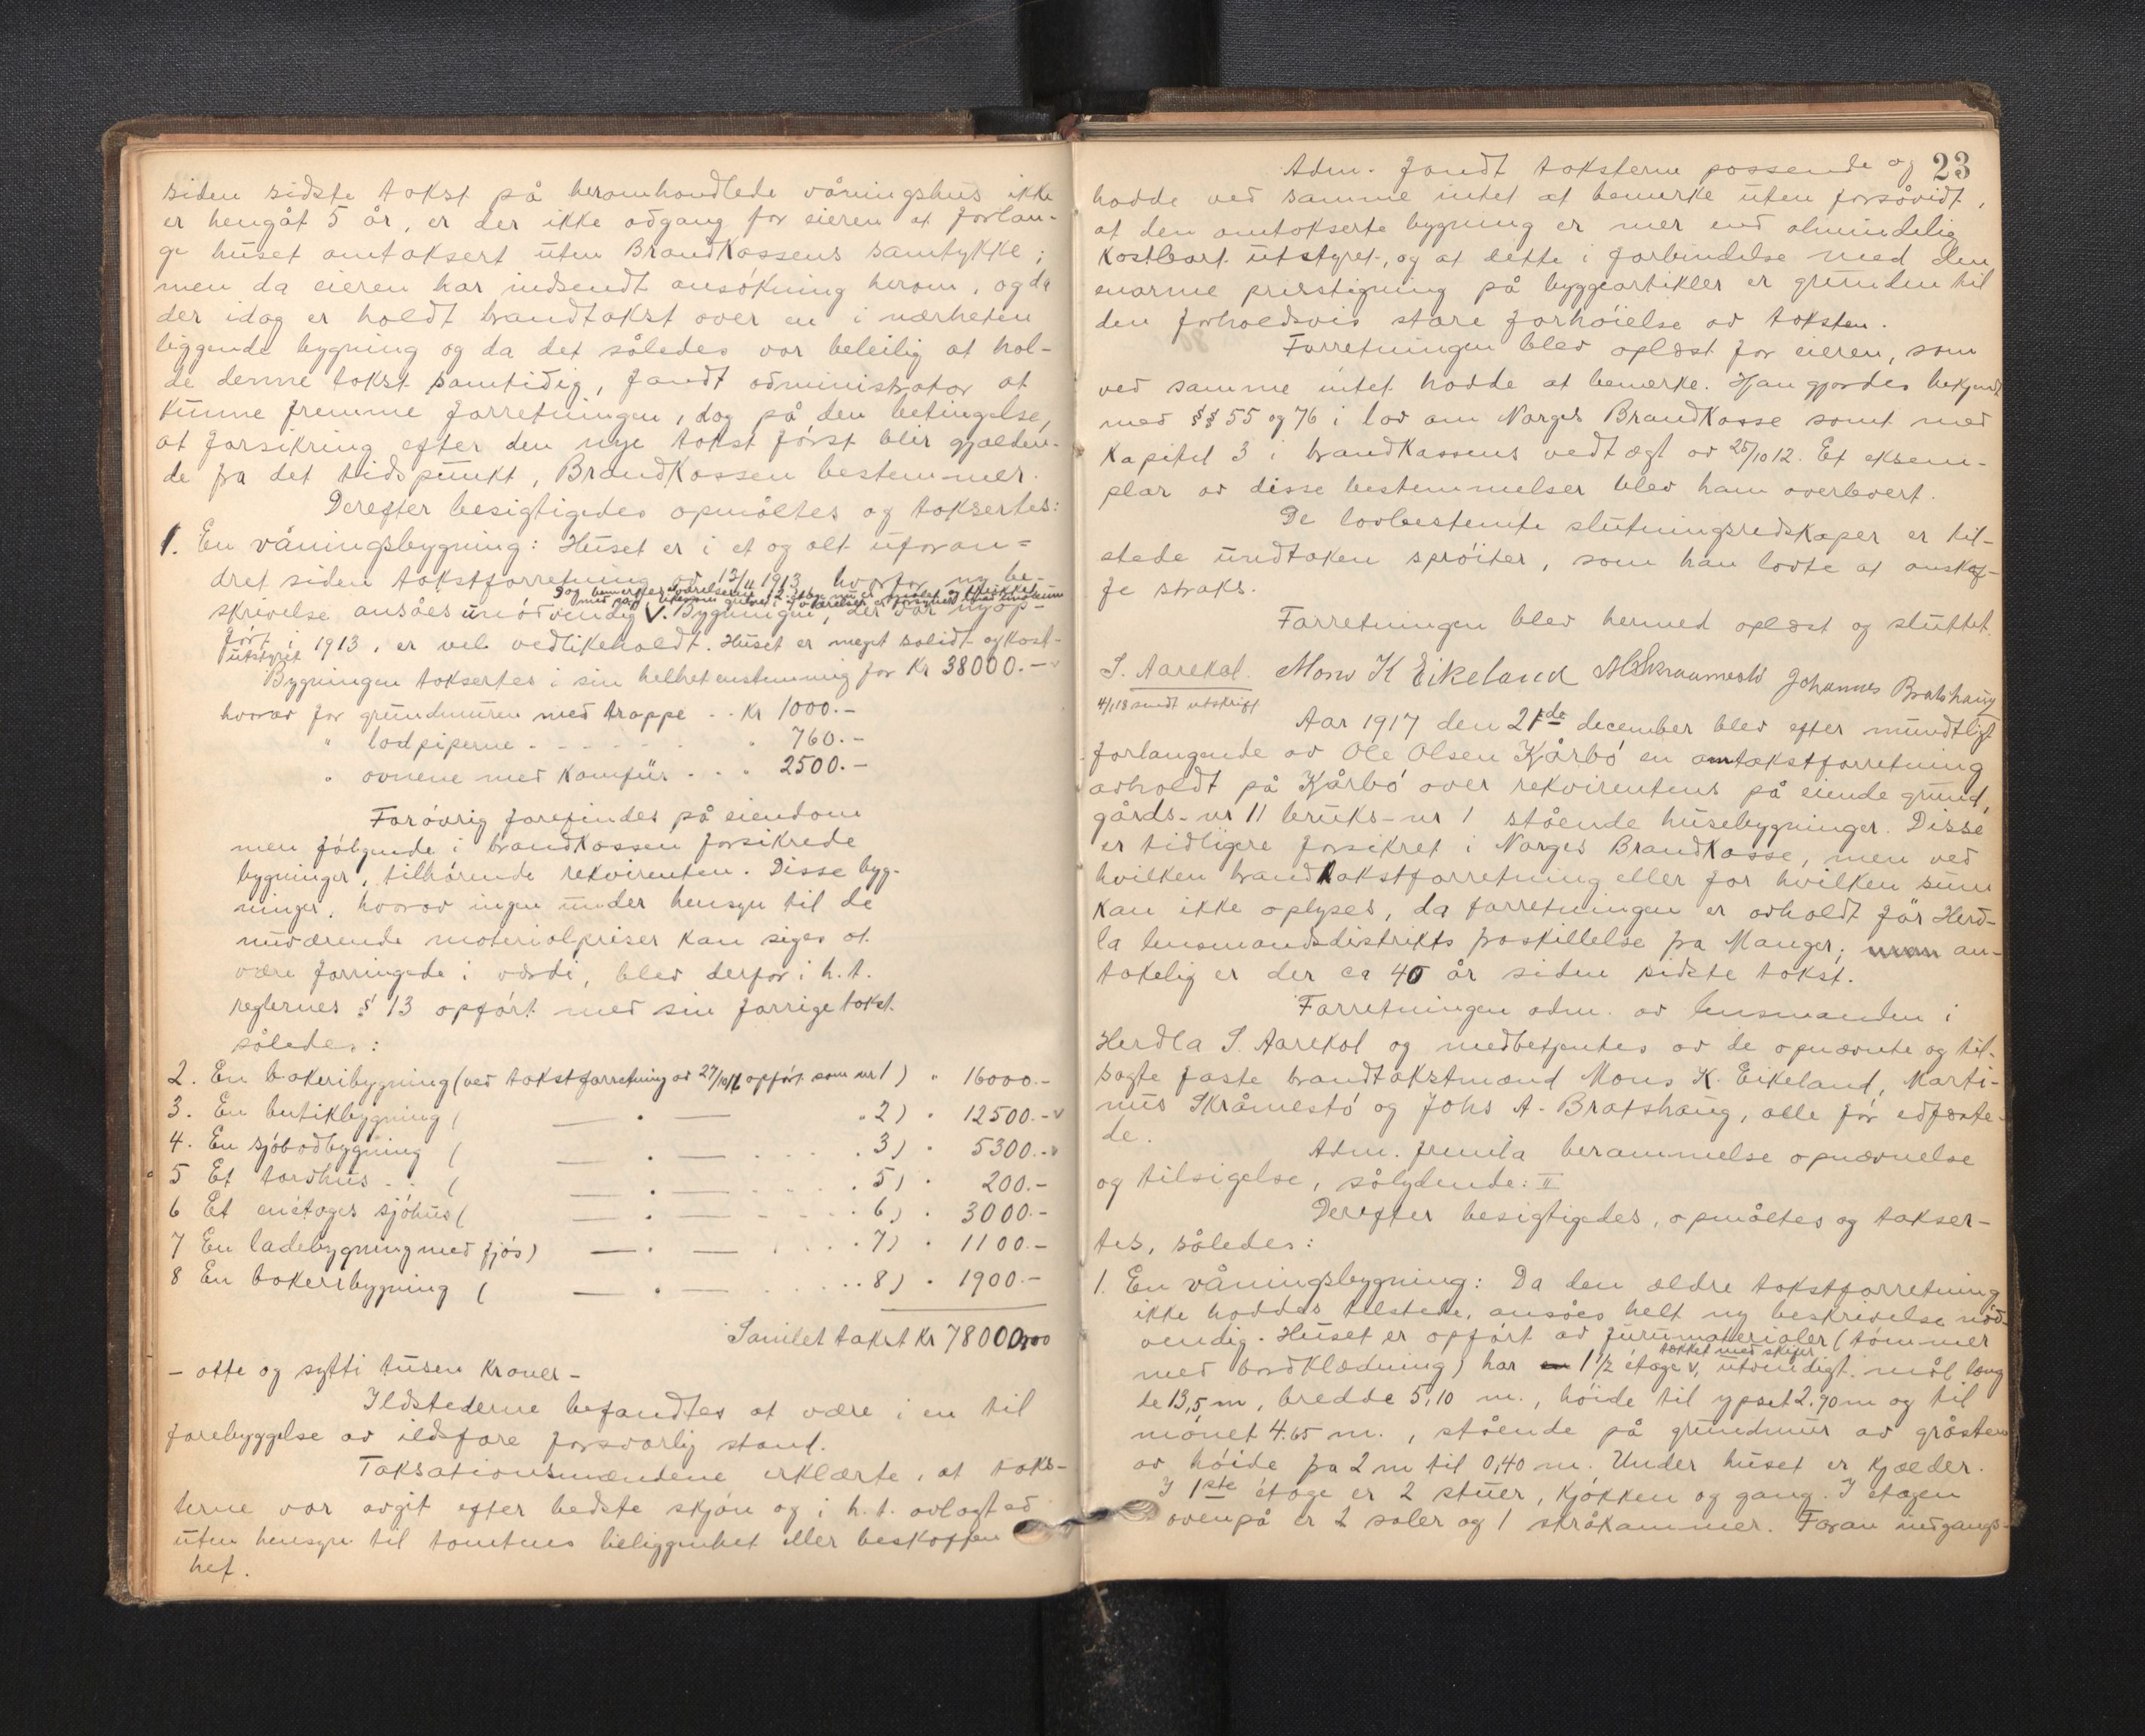 siden sidste takst på heromhandlede våningshus ikke
er hengåt 5 år, er der ikke adgang for eieren at forlan-
ge huset omtaksert uten Brandkassens samtykke;
men da eieren har indsendt ansökning herom, og da
der idag er holdt brandtakst over en i nærheten
liggende bygning og da det således var beleilig at hol-
de denne takst samtidig, fandt administrator at
kunne fremme forretningen, dog på den betingelse,
at forsikring efter den nye takst först blir gjælden-
de fra det tidspunkt, Brandkassen bestemmer.
Derefter besigtigedes opmåltes og taksertes:
1. En våningsbygning: Huset er i et og alt uforan-
dret siden takstforretning av 13/11 1913, hvorfor ny be-
Dog bemerkes
skrivelse ansåes unödvendig V. Bygningen, der var nyop-
fört i 1913, er vel vedlikeholdt. Huset er meget solidt og kost-
utstyret
Bygningen taksertes i sin helhet enstemmig for Kr 38000.-
hvorav for grundmuren med trappe .. Kr 1000.-
" lodpiperne . - - - - " 760.-
" ovnene med komfür . . . " 2500.-
Foróvrig forefindes på eiendom
men fölgende i brandkassen forsikrede
bygninger, tilhörende rekvirenten. Disse byg-
ninger, hvorav ingen under hensyn til de
nuværende materialpriser kan siges at
være forringede i værdi, blev derfor i h.t.
reglernes § 13 opfört med sin forrige takst
således:
2. En bakeribygning (ved takstforretning av 27/10 16 opfört som nr 1) " 16000.-
3. En butikbygning ( — " — " 2) " 12500.-
4. En sjöbodbygning ( — " — . . . 3) " 5300.-
5 Et torvhus . . ( — " — . . . 5) " 200.-
6 Et enetages sjöhus ( — " — . . . 6) " 3000.-
7 En ladebygning med fjös) — " — . . . 7) " 1100.-
8 En bakeribygning ( — " — . . . 8) " 1900.-
Samlet takst Kr 78000,00
- otte og sytti tusen kroner -
Ildstederne befandtes at være i en til
forebyggelse av ildsfare forsvarlig stand.
Taksationsmændene erklærte, at taks-
terne var avgit efter bedste skjön og i h.t. avlagt ed
uten hensyn til tomtens beliggenhet eller beskaffen
het.
23
Adm. fandt taksterne passende og
hadde ved samme intet at bemerke uten forsåvidt,
at den omtakserte bygning er mer end almindelig
kostbart utstyret, og at dette i forbindelse med den
enorme prisstigning på byggeartikler er grunden til
den forholdsvis store forhöielse av taksten.
Forretningen blev oplæst for eieren, som
ved samme intet hadde at bemerke. Han gjordes bekjendt
med §§ 55 og 76 i lov om Norges Brandkasse samt med
Kapitel 3 i brandkassens vedtægt av 25/10 12. Et eksem-
plar av disse bestemmelser blev ham overlevert.
De lovbestemte slutningsredskaper er til-
stede undtaken spröiter, som han lovte at anskaf-
fe straks.
Forretningen blev hermed oplæst og sluttet.
S. Aarekol. Mons K Eikeland M Skraamestö Johannes Bratshaug
4/1 18 sendt utskrift
Aar 1917 den 21de december blev efter mundtligt
forlangende av Ole Olsen Kårbö en omtakstforretning
avholdt på Kårbö over rekvirentens på eiende grund,
gårds-nr 11 bruks-nr 1 stående husebygninger. Disse
er tidligere forsikret i Norges Brandkasse, men ved
hvilken brandtakstforretning eller for hvilken sum
kan ikke oplyses, da forretningen er avholdt för Herd-
la lensmandsdistrikts fraskillelse fra Manger; an-
takelig er der ca 40 år siden sidste takst.
Forretningen adm. av lensmanden i
Herdla S. Aarekol og medbetjentes av de opnævnte og til-
sagte faste brandtakstmænd Mons K. Eikeland, Marti-
nus Skråmestö og Johs A. Bratshaug, alle för edfæste-
de.
Adm. fremla berammelse opnævnelse
og tilsigelse, sålydende: II
Derefter besigtigedes, opmåltes og takser-
tes, således:
1. En våningsbygning: Da den ældre takstforretning
ikke haddes tilstede, ansåes helt ny beskrivelse nöd-
vendig. Huset er opfört av furumaterialer (tömmer
tækket med skifer
med bordklædning) har 1 1/2 etage V, utvendigt mål læng
de 13,5 m, bredde 5,10 m., höide til ypset 2.90 m og til
mönet 4.65 m., stående på grundmur av gråsten
av höide fra 2 m til 0,40 m. Under huset er kjælder.
I 1ste etage er 2 stuer, kjökken og gang. I etagen
ovenpå er 2 saler og 1 skråkammer. Foran indgangs-